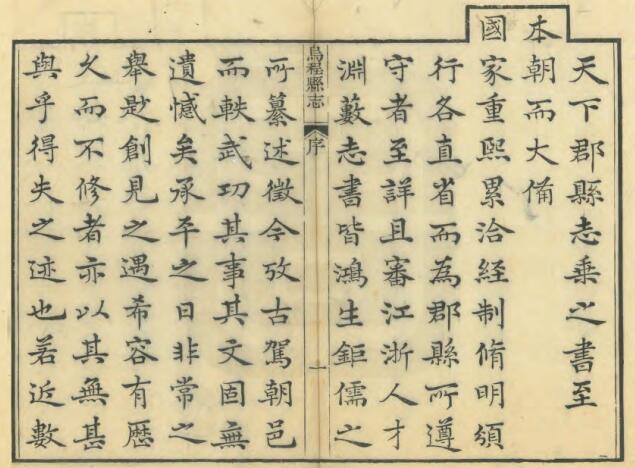 天下郡縣志乘之書至
本朝而大備
國家重熙累洽經制脩明頒
行各直省而為郡縣所遵
守者至詳且審江浙人才
淵藪志書皆鴻生鉅儒之
烏程縣志
序
一
所纂述徵今攷古駕朝邑
而軼武功其事其文固無
遺憾矣承平之日非常之
舉尠創見之遇希容有歷
久而不修者亦以其無甚
與乎得失之迹也若近數